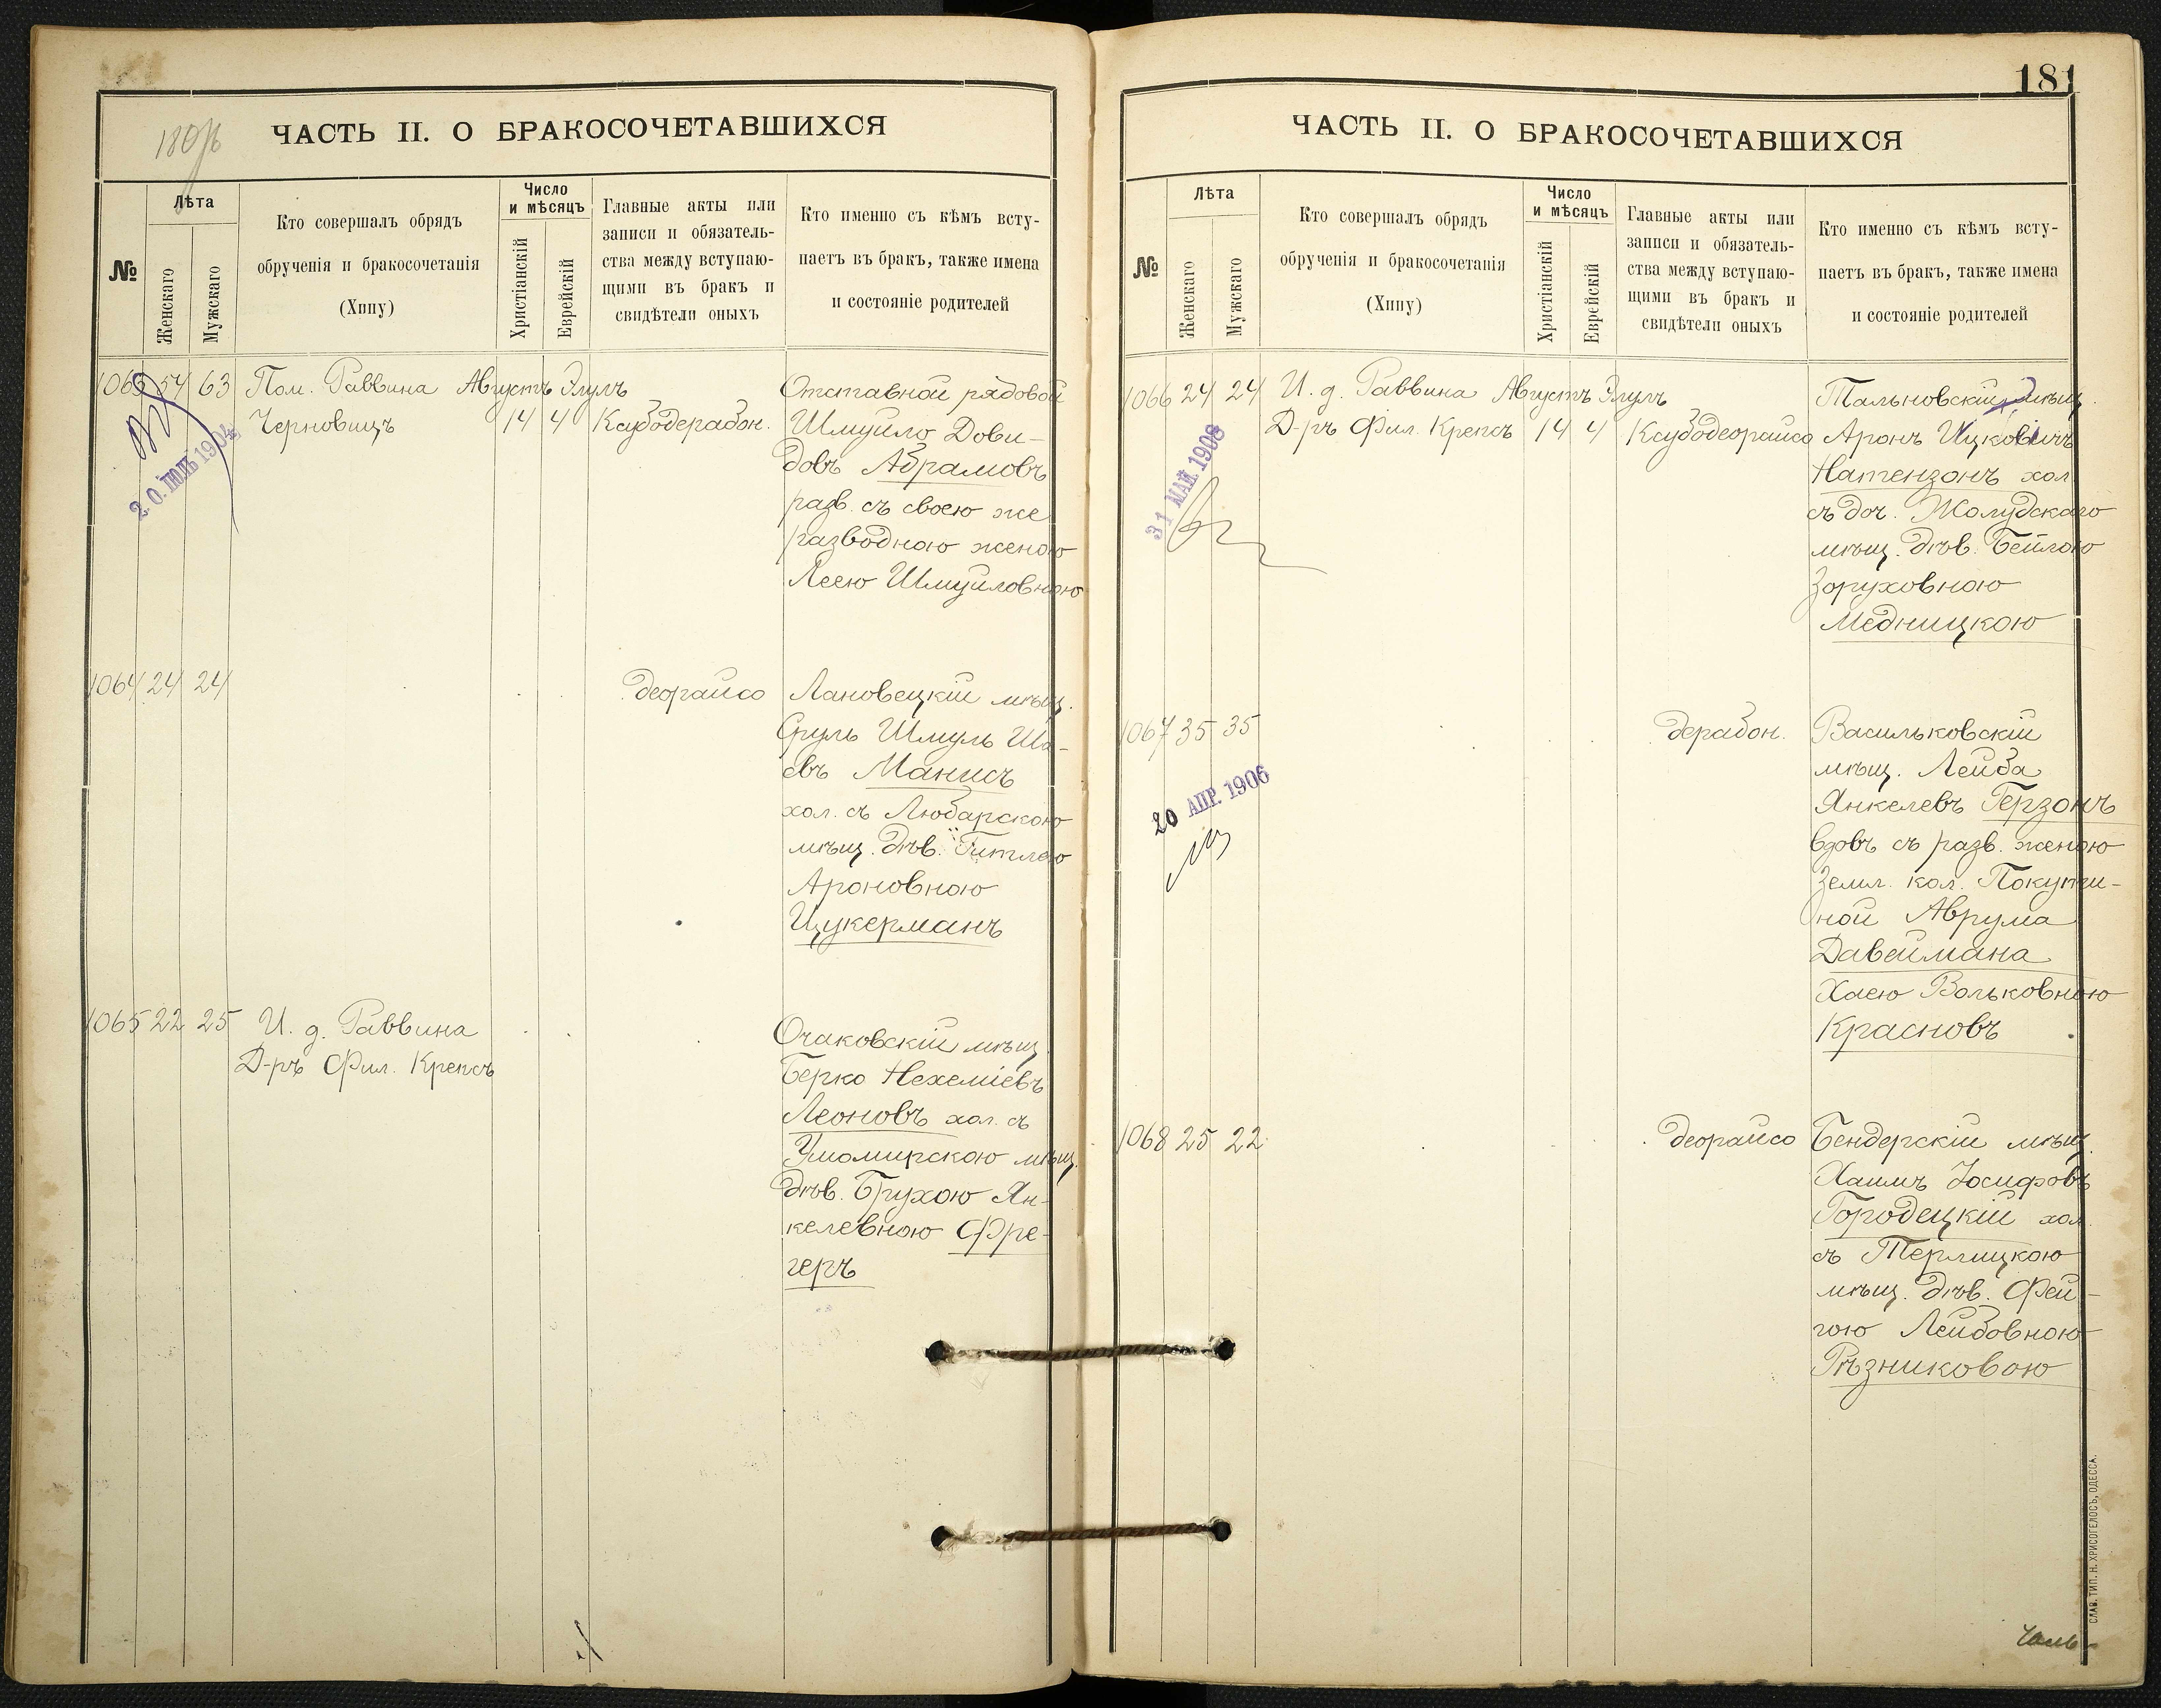 180 об
ЧАСТЬ II. О БРАКОСОЧЕТАВШИХСЯ
№
Лѣта
Женскаго
Мужскаго
Кто совершалъ обрядъ
обрученія и бракосочетанія
(Хипу)
Число
и мѣсяцъ
Христіанскій
Еврейскій
Главные акты или
записи и обязатель-
ства между вступаю-
щими въ бракъ и
свидѣтели оныхъ
Кто именно съ кѣмъ всту-
паетъ въ бракъ, также имена
и состояніе родителей
1063 54 63 Пом. Раввина Августъ Элулъ
Черновицъ 14 4 Ксубодерабон.
20 ІЮЛЬ 1904
Отставной рядовой
Шмуйло Дови-
довъ Абрамовъ
разв. съ своею же
разводною женою
Леею Шмуйловною
1064 24 24 деорайсо
Лановецкій мѣщ.
Сруль Шмуль Ша-
евъ Манисъ
хол. съ Любарскою
мѣщ. дѣв. Гитлею
Ароновною
Цукерманъ
1065 22 25 И. д. Раввина
Д-ръ Фил. Крепсъ
Очаковскій мѣщ.
Берко Нехеміевъ
Леоновъ хол. съ
мѣщ.
дѣв. Брухою Ян-
келевною Фре-
геръ
181
ЧАСТЬ II. О БРАКОСОЧЕТАВШИХСЯ
№
Лѣта
Женскаго
Мужскаго
Кто совершалъ обрядъ
обрученія и бракосочетанія
(Хипу)
Число
и мѣсяцъ
Христіанскій
Еврейскій
Главные акты или
записи и обязатель-
ства между вступаю-
щими въ бракъ и
свидѣтели оныхъ
Кто именно съ кѣмъ всту-
паетъ въ бракъ, также имена
и состояніе родителей
1066 24 24 И. д. Раввина Августъ Элулъ
Д-ръ Фил. Крепсъ 14 4 Ксубодеорайсо
31 МАЙ 1908
Тальновскій мѣщ.
Аронъ Ицковичъ
Натензонъ хол.
съ доч. Жолудскаго
мѣщ. дѣв. Бейлою
Зоруховною
Медницкою
1067 35 35 дерабон.
20 АПР. 1906
Васильковскій
мѣщ. Лейба
Янкелевъ Герзонъ
вдовъ съ разв. женою
Земл. кол. Покути-
ной Аврума
Давеймана
Хаею Вольковною
Красновъ
1068 25 22 деорайсо
Бендерскій мѣщ.
Хаимъ Іосифовъ
Городецкій хол.
съ Терлицкою
мѣщ. дѣв. Фей-
гою Лейбовною
Рѣзниковою
СЛАВ. ТИП. Н. ХРИСОГЕЛОСЪ, ОДЕССА.